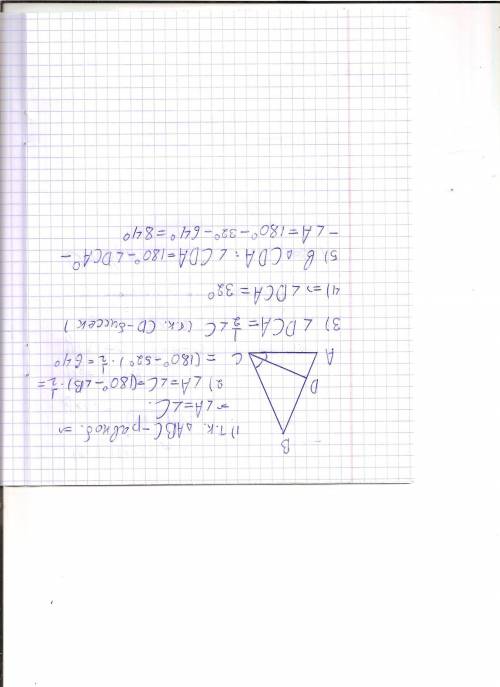 B
D
A
C
1) Т.к. △ABC-равноб. ⇒
⇒ ∠A=∠C.
2) ∠A=∠C=(180°-∠B)·1/2=
= (180°-52°)·1/2=64°
3) ∠DCA=1/2∠C (т.к. CD-биссек)
4) ⇒ ∠DCA=32°
5) В △CDA: ∠CDA=180°-∠DCA° -
-∠A=180°-32°-64°=84°